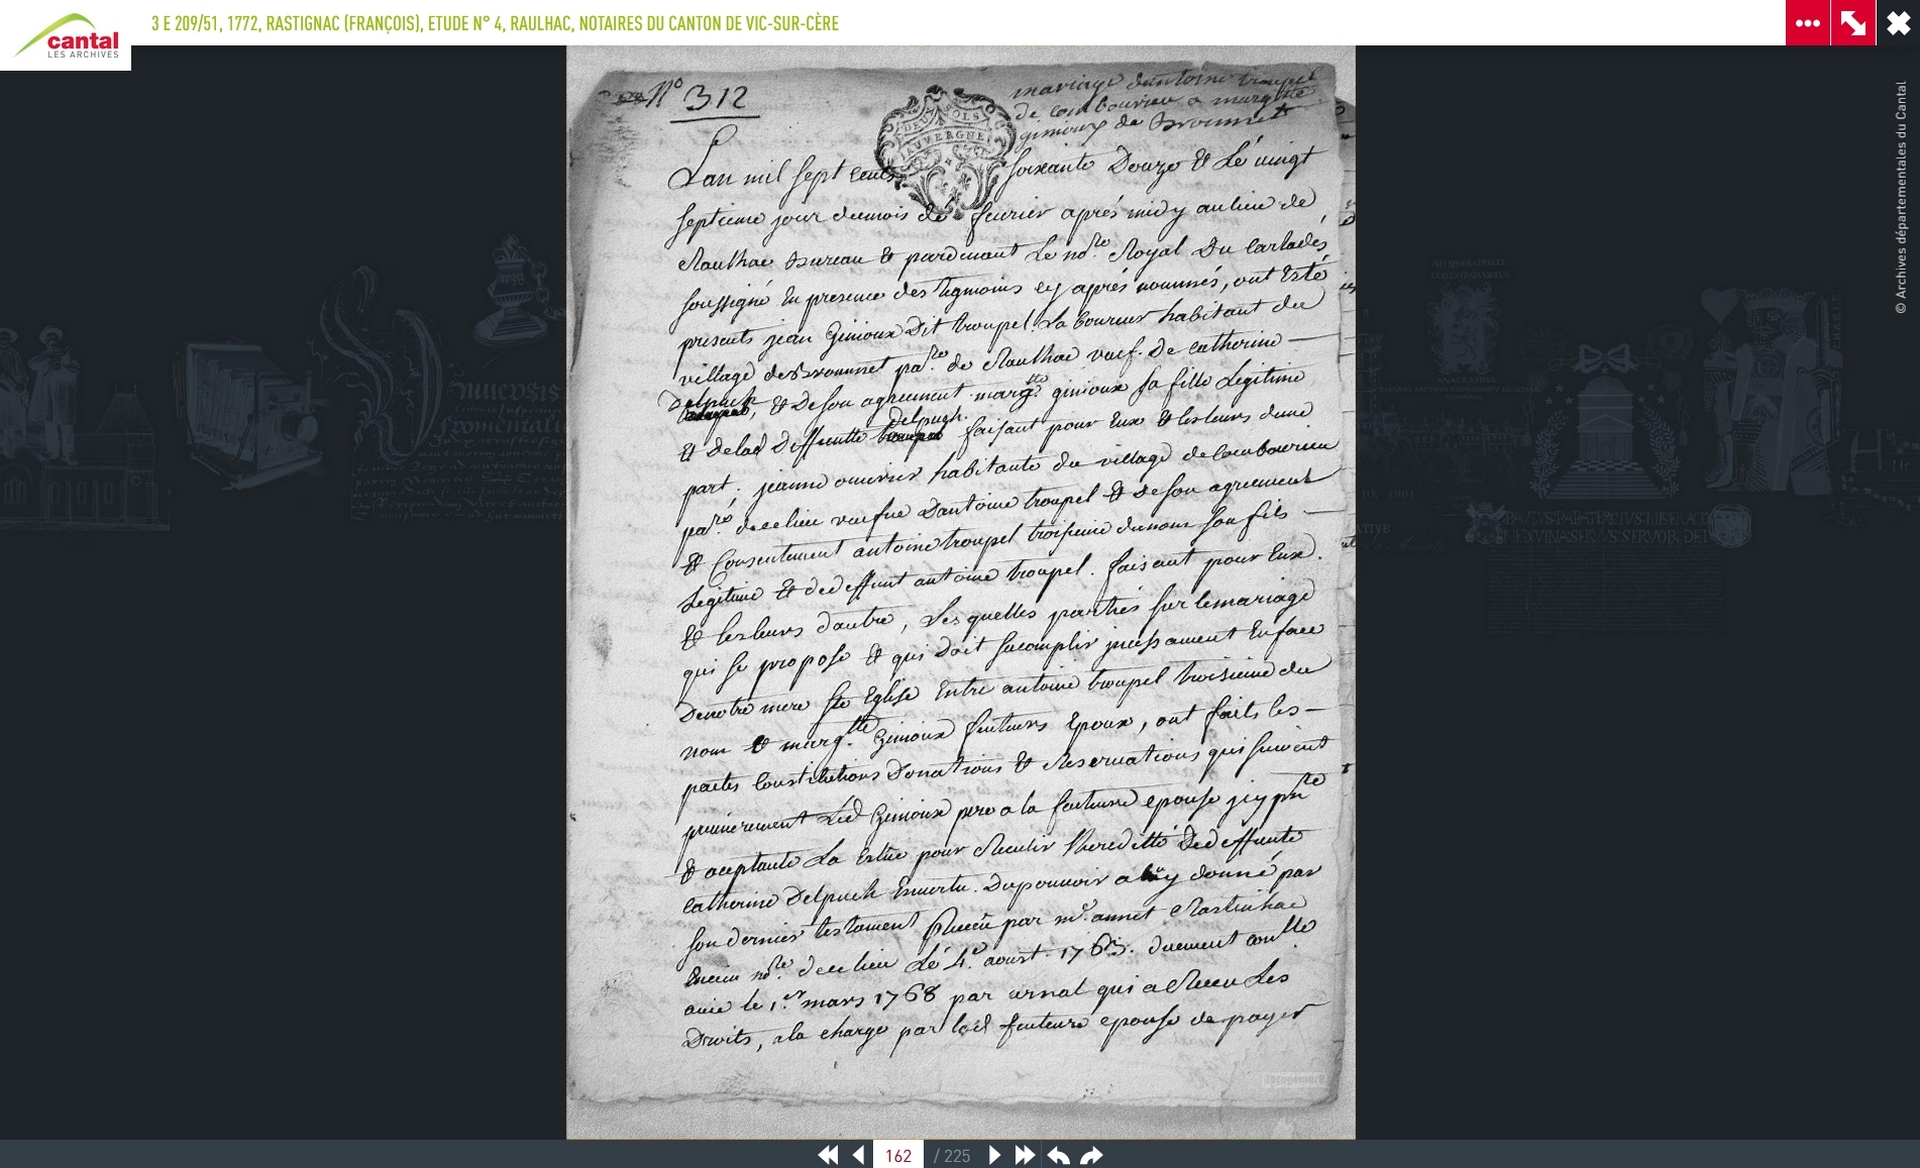 3 E 209/51, 1772, RASTIGNAC (FRANÇOIS), ETUDE N° 4, RAULHAC, NOTAIRES DU CANTON DE VIC-SUR-CÈRE
cantal
LES ARCHIVES
© Archives départementales du Cantal
N° 312
mariage dantoine troupel
de combourieu a margtte
ginioux de Brounnet
DEUX SOLS
AUVERGNE
Lan mil sept cents soixante Douze & Le vingt
septieme jour dumois de fevrier aprés midy au lieu de
Raulhac bureau & pardevant Le nore Royal Du carladés
soussigné En presence des temoins cy aprés nommés, ont Esté
presents jean Ginioux Dit troupel Laboureur habitant du
village de Brounnet parre de Raulhac veuf De catherine
Delpuech, & De son agrement margtte ginioux sa fille Legitime
& delad Deffunte Delpuch faisant pour Eux & les leurs dune
part; jeanne ouvrier habitante du village de Combourieu
parre de ce lieu veufve Dantoine troupel & De son agrement
& Consentement antoine troupel troisieme du nom son fils
Legitime & de deffunt antoine troupel. faisant pour Eux
& les leurs dautre, Les quelles parties sur le mariage
qui se propose & qui Doit sacomplir incessament En face
De notre mere Ste Eglise Entre antoine troupel troisieme du
nom & margtte Ginioux futurs Epoux, ont faits les
pactes Constitutions Donations & Reservations qui suivent
premierement Led Ginioux pere a la future epouse icy pnte
& aceptante La Eslue pour Reculir lheredité De deffunte
catherine Delpuech En vertu Du pouvoir a luy donné par
son dernier testament Receu par me annet Rastinhac
Encien nore de ce lieu Le 4e aoust 1765. duement conllé
avic le 1er mars 1768 par arnal qui a Receu Les
Droits, a la charge par lad future epouse de payer
162 / 225